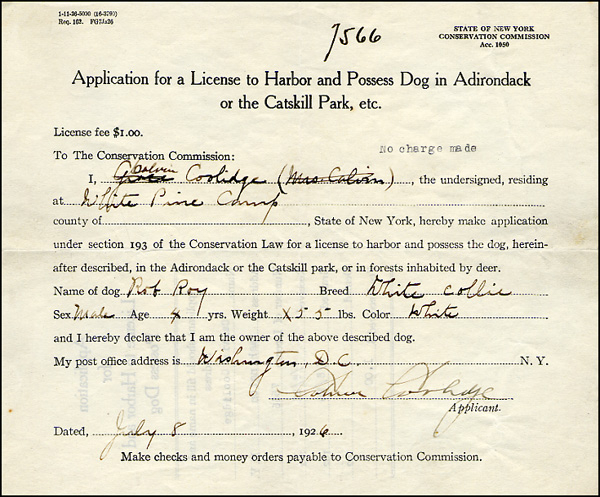 1-11-26-5000 (16-3703)
Req. 162.
7566
STATE OF NEW YORK
CONSERVATION COMMISSION
Acc. 1050
Application for a License to Harbor and Possess Dog in Adirondack
or the Catskill Park, etc.
License fee $1.00.
No charge made
To The Conservation Commission:
Calvin
I, Grace Coolidge (Mrs Calvin), the undersigned, residing
at White Pine Camp
county of, State of New York, hereby make application
under section 193 of the Conservation Law for a license to harbor and possess the dog, herein-
after described, in the Adirondack or the Catskill park, or in forests inhabited by deer.
Name of dog Rob Roy Breed White Collie
Sex Male Age 4 yrs. Weight X55 lbs. Color White
and I hereby declare that I am the owner of the above described dog.
My post office address is Washington, D.C. N. Y.
Calvin Coolidge
Applicant.
Dated, July 8, 1926
Make checks and money orders payable to Conservation Commission.